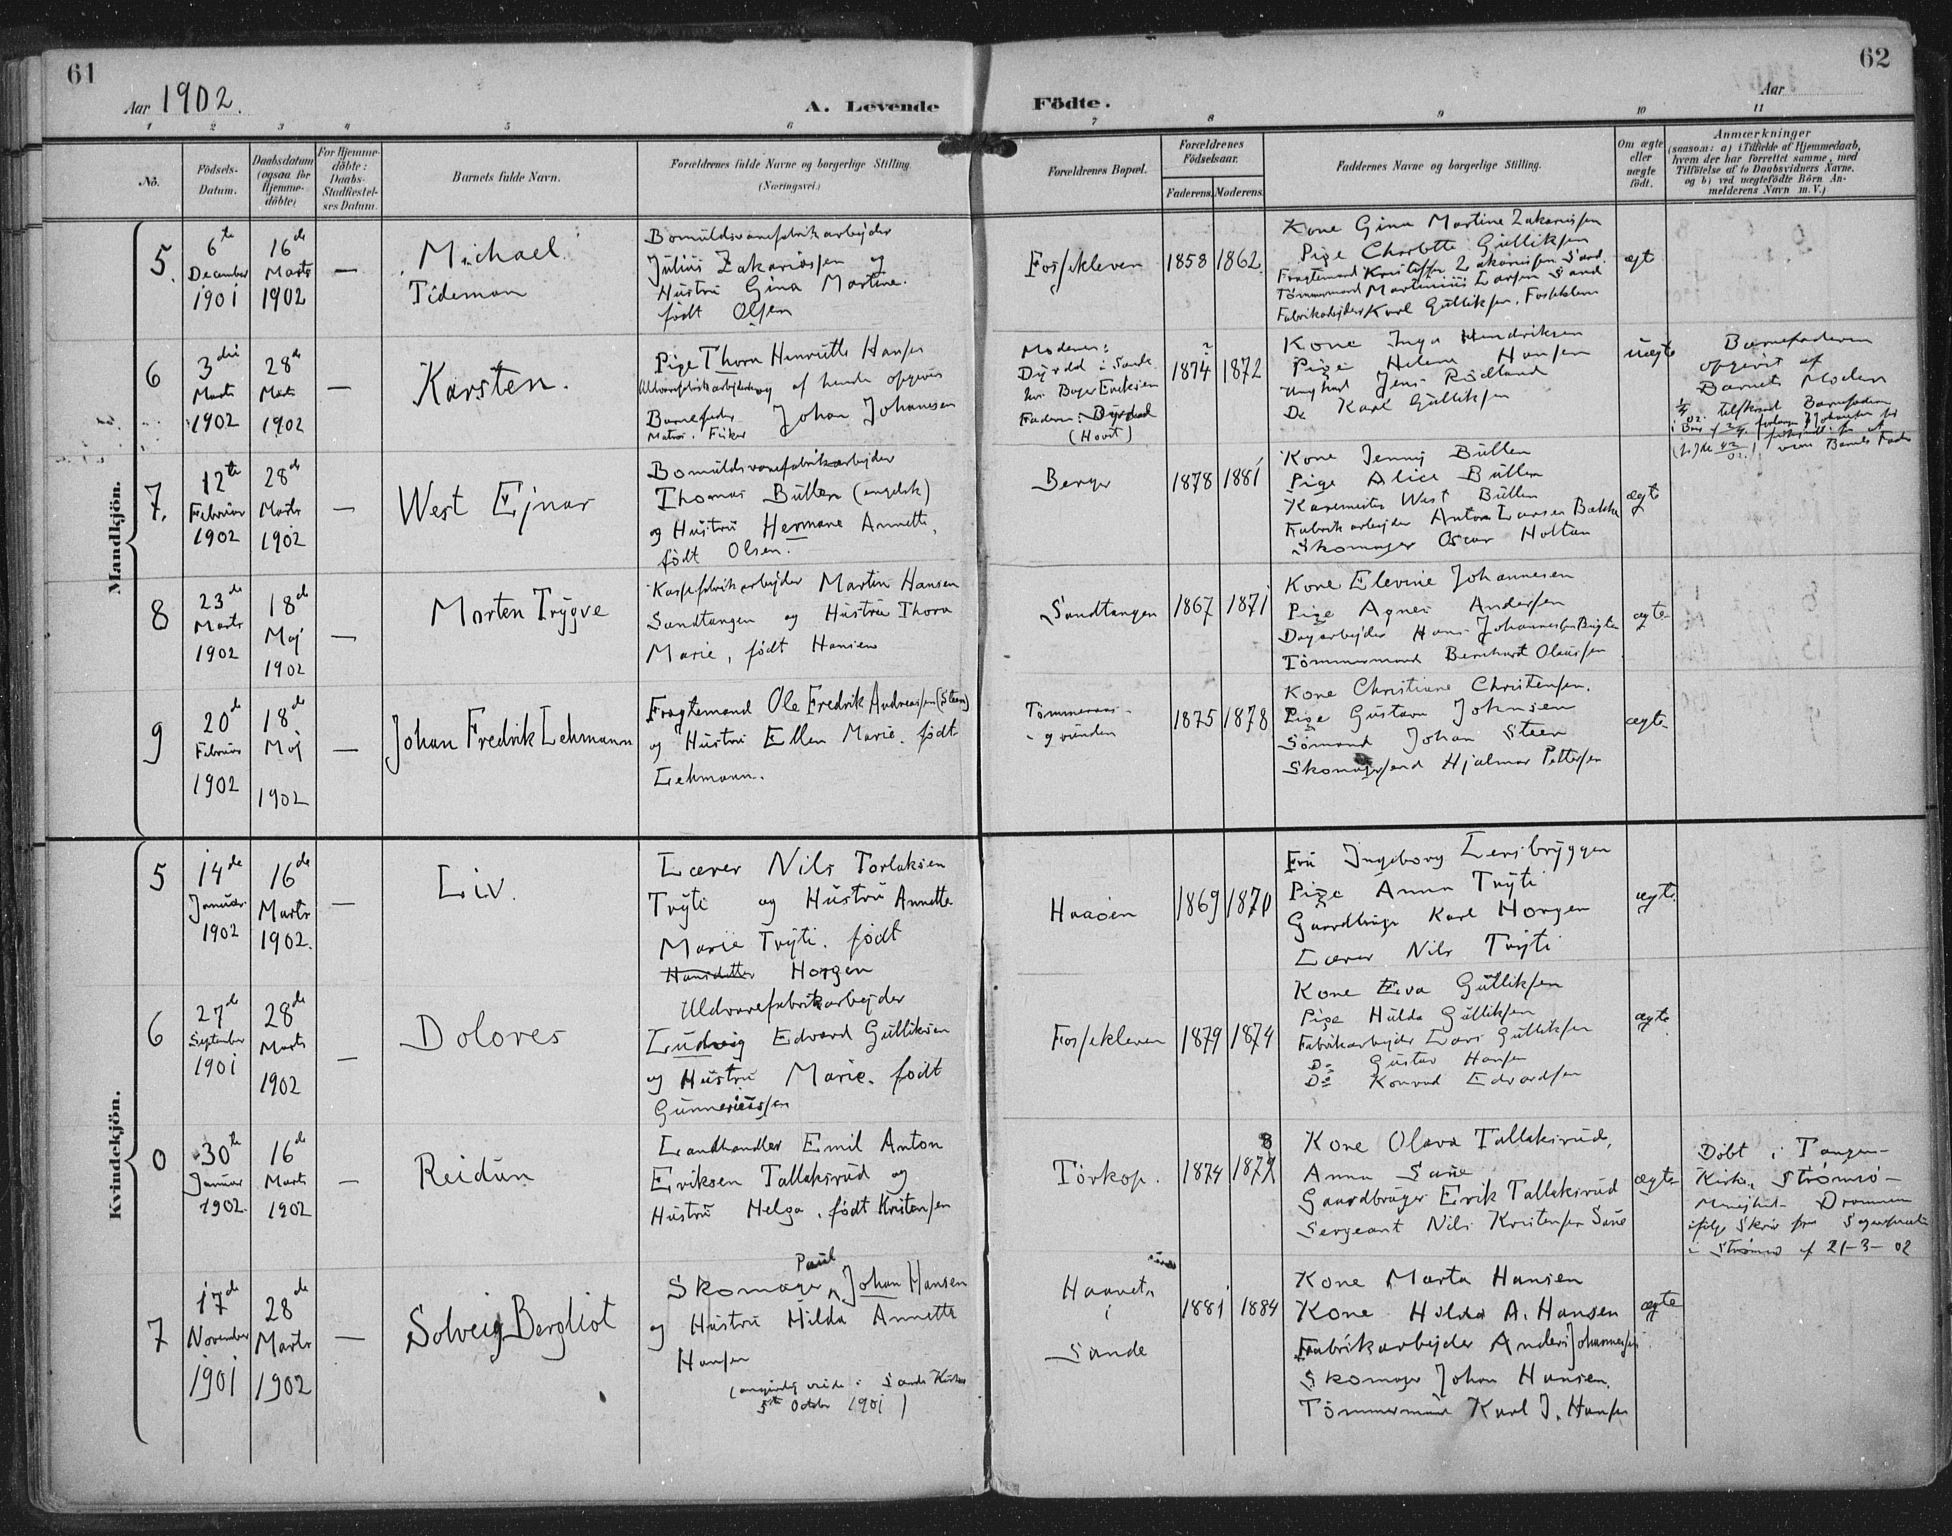 61
Aar 1902.
A. Levende
Födte.
62
Aar
1 2 3 4 5 6 7 8 9 10 11
No.
Födsels-
Datum.
Daabsdatum
(ogsaa for
Hjemme-
döbte)
For Hjemme-
döbte:
Daabs-
Stadfæstel-
ses Datum.
Barnets fulde Navn.
Forældrenes fulde Navne og borgerlige Stilling.
(Næringsvei.)
Forældrenes Bopæl.
Forældrenes
Födselsaar.
Faderens. Moderens.
Faddernes Navne og borgerlige Stilling.
Om ægte
eller
uægte
födt.
Anmærkninger
(saasom: a) i Tilfælde af Hjemmedaab,
hvem der har forrettet samme, med
Tilföielse af to Daabsvidners Navne.
og b) ved uægtefödte Börn An-
melderens Navn m. V.)
Mandkjön.
5.
6te
December
1901
16de
Marts
1902
—
Michael
Tideman
Bomuldsvarefabrikarbejder
Julius Zakariassen og
Hustru Gina Martine.
født Olsen
Fossekleven
1858
1862
Kone Gina Martine Zakariassen
Pige Charlotte Gulliksen
Fragtemand Kristoffer Zakariassen Sand.
Tømmermand Martinius Larsen Sand
Fabrikarbejder Karl Gulliksen, Fossekleven
ægte
6
3die
Marts
1902
28de
Marts
1902
—
Karsten.
Pige Thora Henriette Hansen
Uldvarefabrikarbejderske og af hende opgivet
Barnefader Johan Johansen
Matros. Fisker
Moderen:
Dyrdal i Sande
hos Boger Eriksen
Faderen: Dyrdal
(Hovet)
1874
1872
Kone Inga Hendriksen
Pige Helene Hansen
Ungkarl Jens Rødland
Do Karl Gulliksen
uægte
Barnefaderen
opgivet af
Barnets Moder
7.
12te
Februar
1902
28de
Marts
1902
—
West Ejnar
Bomuldsvarefabrikarbejder
Thomas Bullen (engelsk)
og Hustru Hermane Annette,
født Olsen.
Berger
1878
1881
Kone Jenny Bullen
Pige Alice Bullen
Væremester West Bullen
Fabrikarbejder Anton Larsen Bakke
Skomager Oscar Holtan
ægte
8
23de
Marts
1902
18de
Maj
1902
—
Morten Trygve
Kassefabrikarbejder Martin Hansen
Sandtangen og Hustru Thora
Marie, født Hansen
Sandtangen
1867
1871
Kone Elevine Johannesen
Pige Agnes Andersen
Dagarbejder Hans Johannessen
Tømmermand Bernhardt Olaussen
ægte
9
20de
Februar
1902
18de
Maj
1902
—
Johan Fredrik Lehmann
Fragtemand Ole Fredrik Andreassen (Steen)
og Hustru Ellen Marie. født
Lehmann.
Tømmeraas-
grunden
1875
1878
Kone Christiane Christensen.
Pige Gustava Johnsen
Sømand Johan Steen
Skomagersvend Hjalmar Pettersen
ægte
Kvindekjön.
5
14de
Januar
1902
16de
Marts
1902.
—
Liv.
Lærer Nils Torlaksen
Tryti og Hustru Annette
Marie Tryti. født
Hansdatter Horgen
Haaøen
1869
1870
Fru Ingeborg Lersbryggen
Pige Anna Tryti
Gaardbruger Karl Horgen
Lærer Nils Tryti
ægte
6
27de
September
1901
28de
Marts
1902
—
Dolores
Uldvarefabrikarbejder
Ludvig Edvard Gulliksen
og Hustru Marie. født
Gunneriussen
Fossekleven
1879
1874
Kone Eva Gulliksen
Pige Hulda Gulliksen
Fabrikarbejder Lars Gulliksen
Do Gustav Hansen
Do Konrad Edvardsen
ægte
0
30te
Januar
1902
16de
Marts
1902
—
Reidun
Landhandler Emil Anton
Eriksen Tallaksrud og
Hustru Helga. født Kristensen
Tørkop.
1874
1879
8
Kone Olava Tallaksrud,
Anna Saue
Gaardbruger Erik Tallaksrud
Sergeant Nils Kristensen Saue
ægte
Døbt i Tangen-
Kirke, Strømsø-
Menighed. Drammen
ifølge Skriv fra Sognepræsten
i Strømsø af 21-3-02
7
17de
November
1901
28de
Marts
1902
—
Solveig Bergliot
Paul
Skomager Johan Hansen
og Hustru Hilda Annette
Hansen
(angivelig viede i Sande Kirke
5te October 1901)
Haavets
i
Sande
1881
1884
Kone Marta Hansen
Kone Hilda A. Hansen
Fabrikarbejder Anders Johannessen
Skomager Johan Hansen.
Tömmermand Karl J. Hansen
ægte